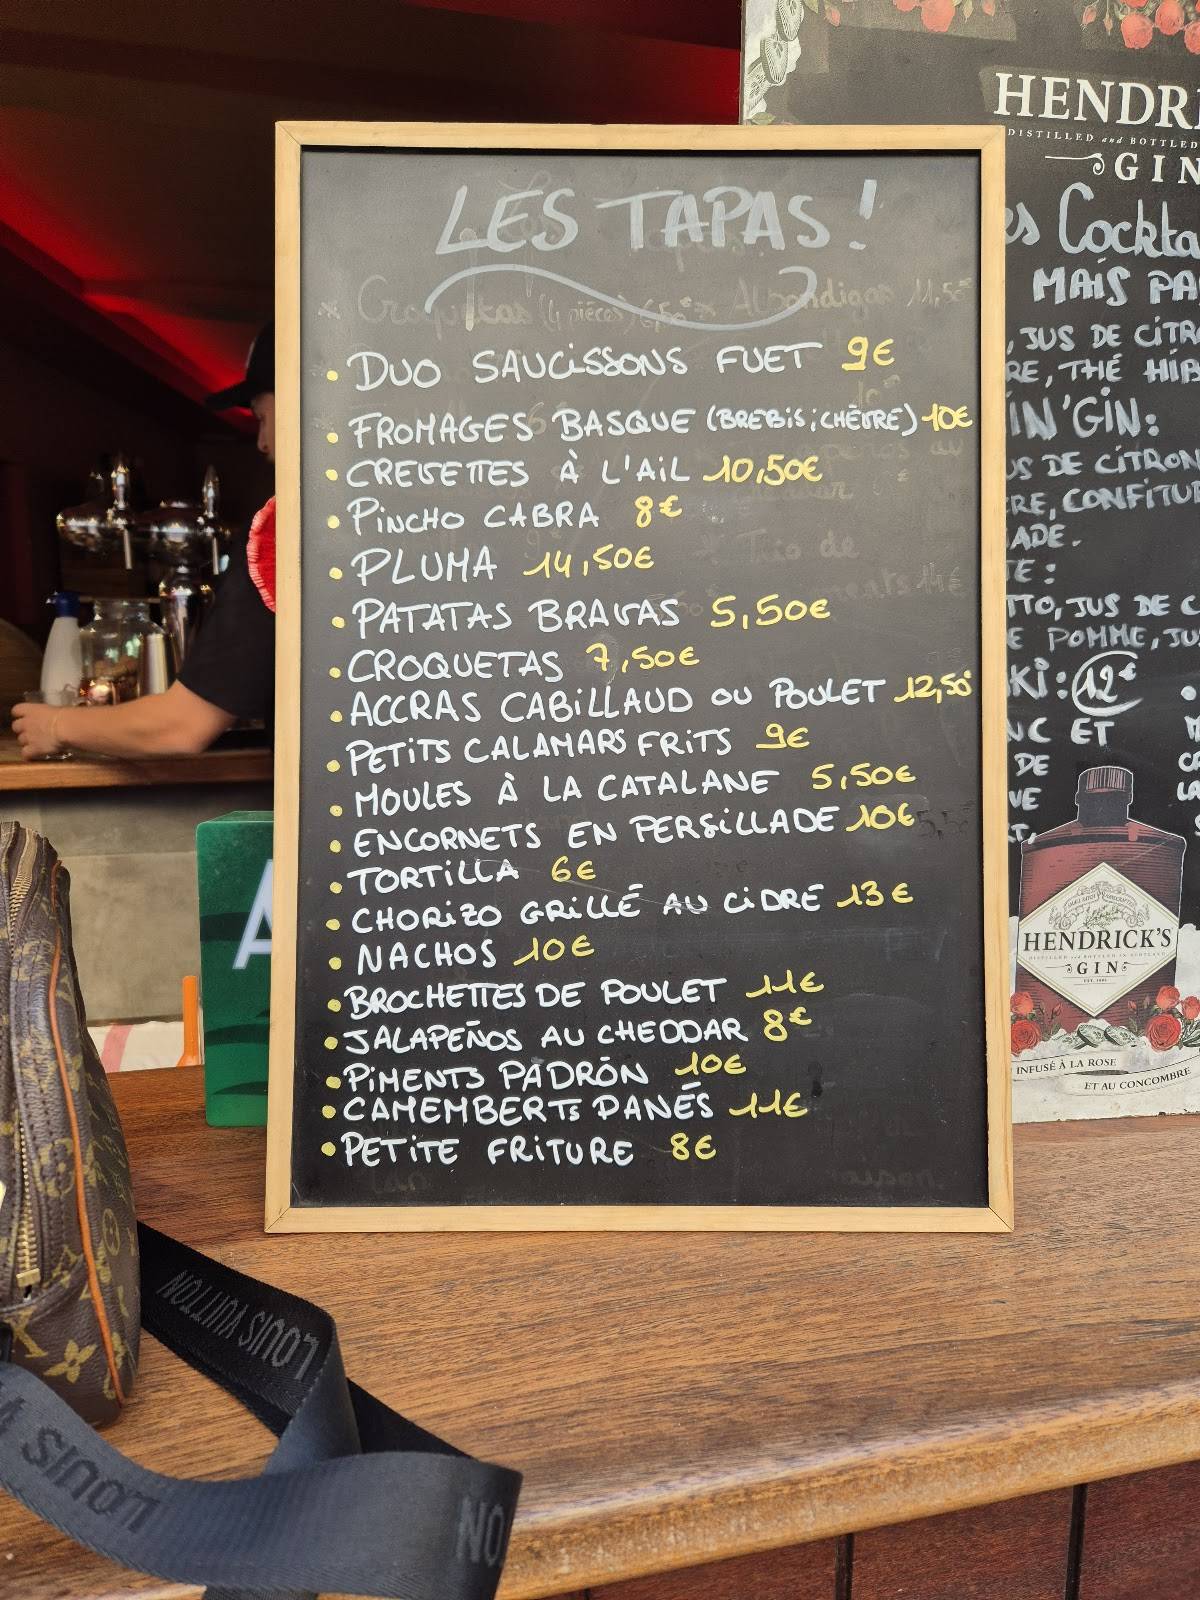 LES TAPAS !
Croquetas (4 pièces) 6,50€ Albondigas 11,50€
• DUO SAUCISSONS FUET 9€
• FROMAGES BASQUE (BREBIS; CHÈVRE) 10€
• CREVETTES À L'AIL 10,50€
• PINCHO CABRA 8€
• PLUMA 14,50€
• PATATAS BRAVAS 5,50€
• CROQUETAS 7,50€
• ACCRAS CABILLAUD OU POULET 12,50
• PETITS CALAMARS FRITS 9€
• MOULES À LA CATALANE 5,50€
• ENCORNETS EN PERSILLADE 10€
• TORTILLA 6€
• CHORIZO GRILLÉ AU CIDRE 13€
• NACHOS 10€
• BROCHETTES DE POULET 11€
• JALAPEÑOS AU CHEDDAR 8€
• PIMENTS PADRÓN 10€
• CAMEMBERTS PANÉS 11€
• PETITE FRITURE 8€
HENDRI
DISTILLED and BOTTLED
GIN
es Cockta
MAIS PA
, JUS DE CITR
RE, THÉ HIB
IN'GIN:
US DE CITRON
RE, CONFITUR
ADE.
TE:
TTO, JUS DE C
E POMME, JU
KI: 12€
NC ET
DE
VE
HENDRICK'S
DISTILLED and BOTTLED IN SCOTLAND
GIN
INFUSÉ À LA ROSE
ET AU CONCOMBRE
A
LOUIS VUITTON
LOUIS V
ON